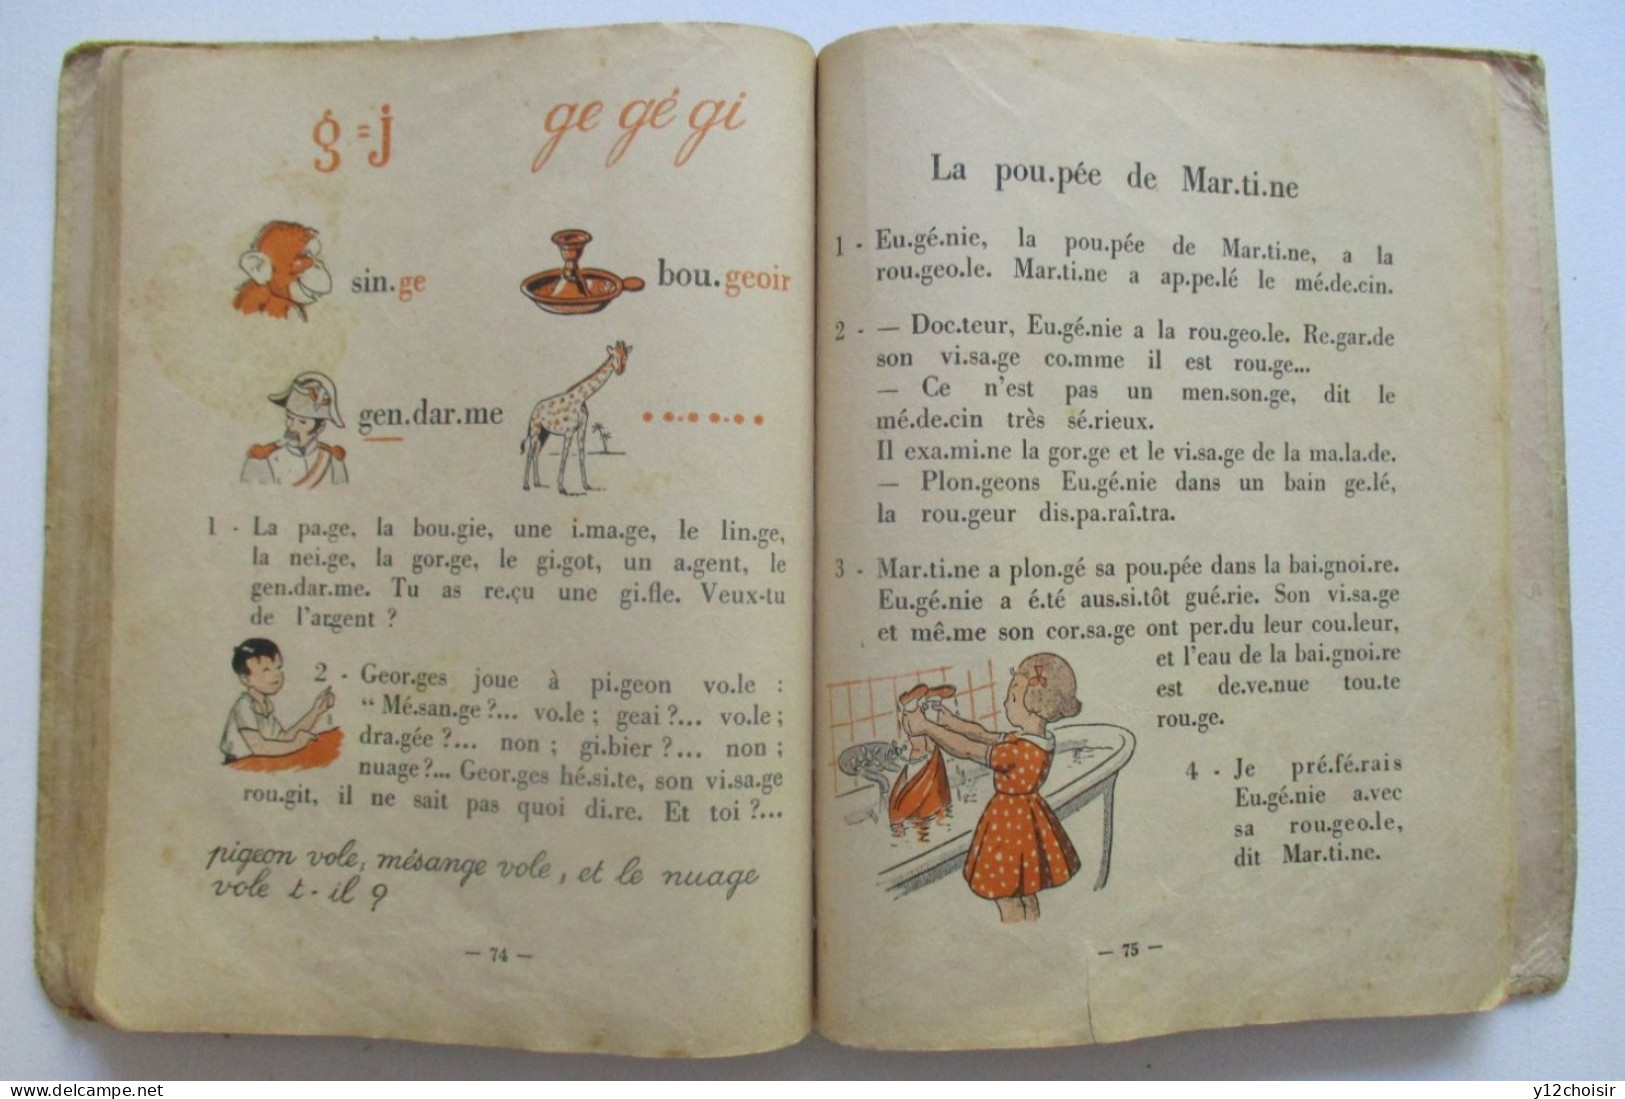 g = j
ge gé gi
sin.ge
bou.geoir
gen.dar.me
1 - La pa.ge, la bou.gie, une i.ma.ge, le lin.ge,
la nei.ge, la gor.ge, le gi.got, un a.gent, le
gen.dar.me. Tu as re.çu une gi.fle. Veux-tu
de l'argent ?
2 - Geor.ges joue à pi.geon vo.le :
“ Mé.san.ge ?... vo.le ; geai ?... vo.le ;
dra.gée ?... non ; gi.bier ?... non ;
nuage ?... Geor.ges hé.si.te, son vi.sa.ge
rou.git, il ne sait pas quoi di.re. Et toi ?...
pigeon vole, mésange vole, et le nuage
vole t-il ?
— 74 —
La pou.pée de Mar.ti.ne
1 - Eu.gé.nie, la pou.pée de Mar.ti.ne, a la
rou.geo.le. Mar.ti.ne a ap.pe.lé le mé.de.cin.
2 - — Doc.teur, Eu.gé.nie a la rou.geo.le. Re.gar.de
son vi.sa.ge co.mme il est rou.ge...
— Ce n'est pas un men.son.ge, dit le
mé.de.cin très sé.rieux.
Il exa.mi.ne la gor.ge et le vi.sa.ge de la ma.la.de.
— Plon.geons Eu.gé.nie dans un bain ge.lé,
la rou.geur dis.pa.raî.tra.
3 - Mar.ti.ne a plon.gé sa pou.pée dans la bai.gnoi.re.
Eu.gé.nie a é.té aus.si.tôt gué.rie. Son vi.sa.ge
et mê.me son cor.sa.ge ont per.du leur cou.leur,
et l'eau de la bai.gnoi.re
est de.ve.nue tou.te
rou.ge.
4 - Je pré.fé.rais
Eu.gé.nie a.vec
sa rou.geo.le,
dit Mar.ti.ne.
— 75 —
https://www.delcampe.net
y12choisir